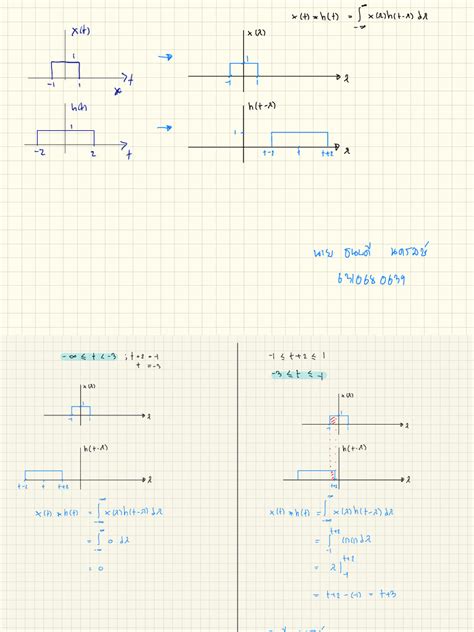 x(t) * h(t) = ∫_{-∞}^{∞} x(λ)h(t-λ) dλ
x(t)
1
-1 1 t
x(λ)
1
-1 1 λ
h(t)
1
-2 2 t
h(t-λ)
1
t-2 t t+2 λ
นาย
6310680639
-∞ ≤ t < -3 ; t+2 = -1
t = -3
x(λ)
1
-1 1 λ
h(t-λ)
t-2 t t+2 λ
x(t) * h(t) = ∫_{-∞}^{∞} x(λ)h(t-λ) dλ
= ∫_{-∞}^{∞} 0 dλ
= 0
-1 ≤ t+2 ≤ 1
-3 ≤ t ≤ -1
x(λ)
1
-1 1 λ
h(t-λ)
λ
x(t) * h(t) = ∫_{-∞}^{∞} x(λ)h(t-λ) dλ
= ∫_{-1}^{t+2} (1)(1) dλ
= λ|_{-1}^{t+2}
= t+2 - (-1) = t+3